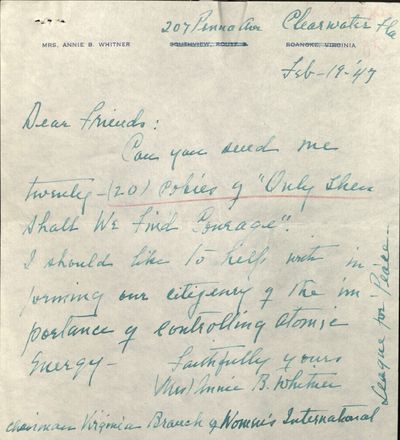 207 Penna Ave Clearwater Fla
MRS. ANNIE B. WHITNER
SOUTHVIEW, ROUTE
ROANOKE, VIRGINIA
Feb-19-'47
Dear Friends:
Can you send me
twenty-(20) Copies of "Only Then
Shall We Find Courage".
I should like to help with in
forming our citizenry of the im
portance of controlling atomic
Energy-
Faithfully yours
(Mrs) Annie B. Whitner
chairman Virginia Branch of Women's International
League for Peace